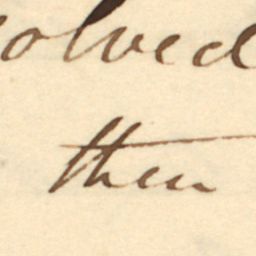 olved
then